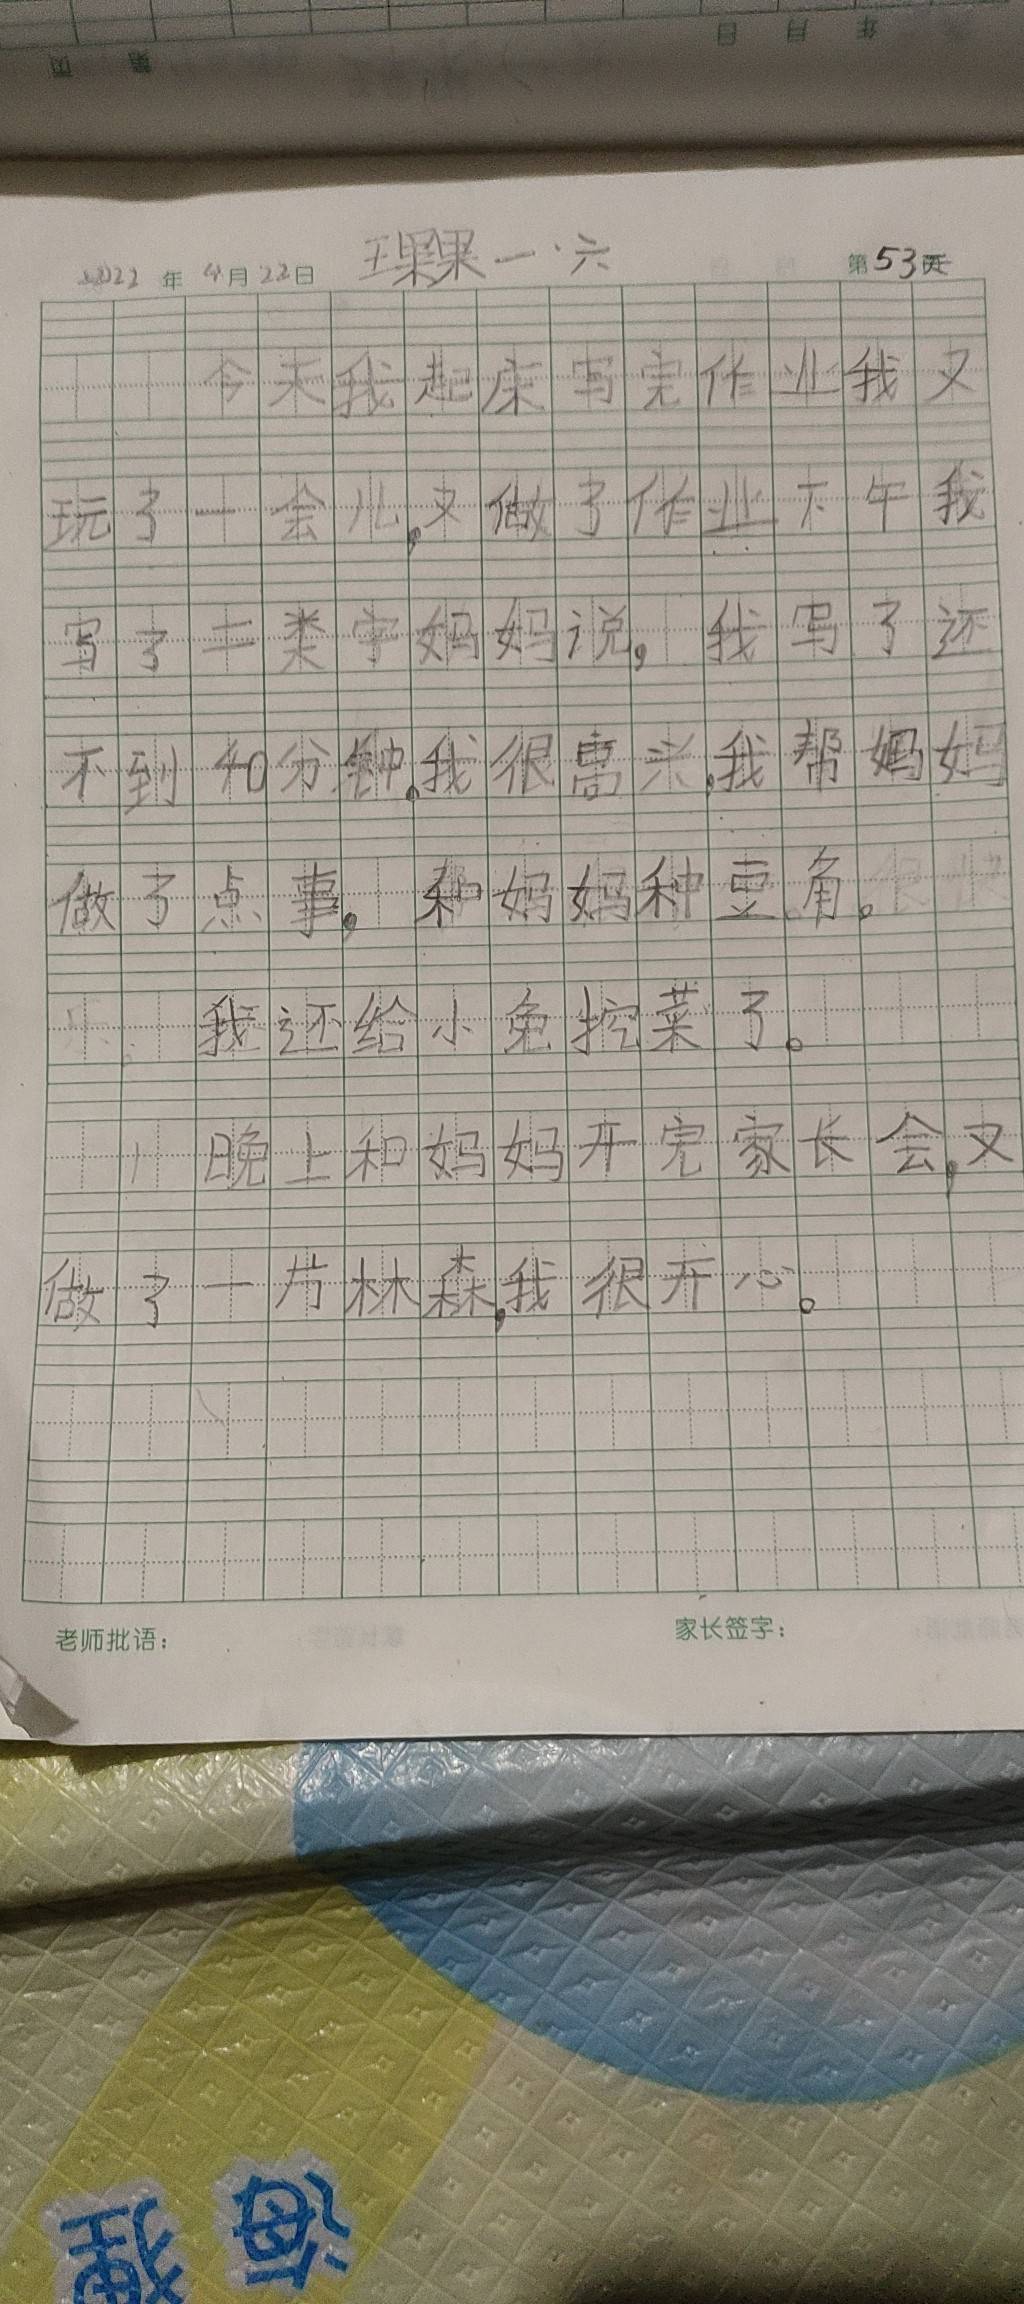 第 页 年 月 日
2022年4月22日 王果果 一·六 第53天
今天我起床写完作业我又
玩了一会儿,又做了作业下午我
写了二类字妈妈说,我写了还
不到40分钟.我很高兴,我帮妈妈
做了点事,和妈妈种豆角。
我还给小兔挖菜了。
晚上和妈妈开完家长会,又
做了一片林森,我很开心。
老师批语: 家长签字:
海
狸